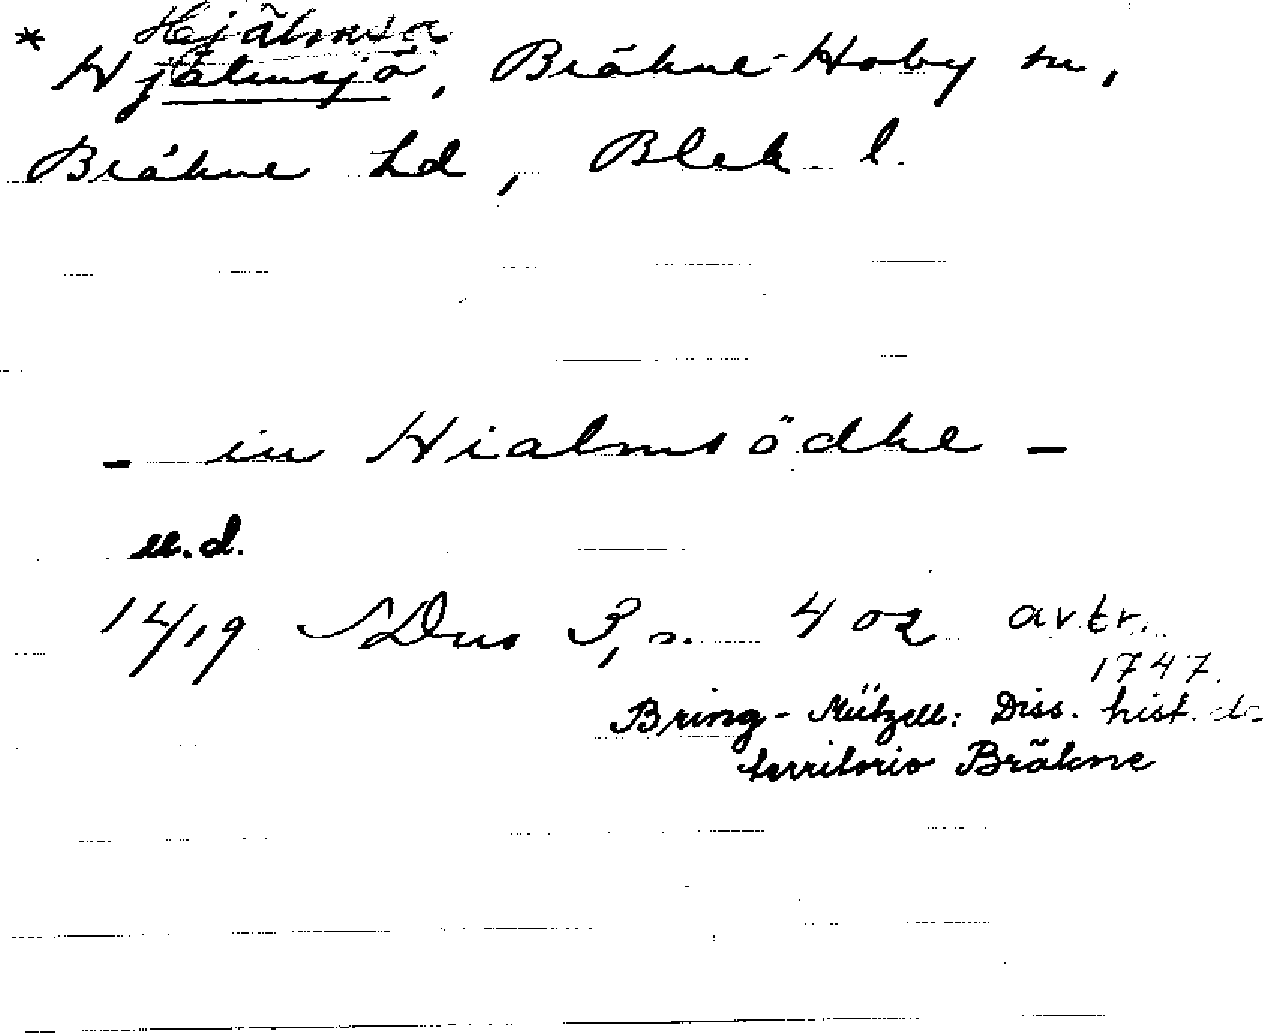 Hjälmsa
* Hjälmsjö, Bräkne-Hoby sn,
Bräkne hd, Blek l.
- in Hialmsödhe -
u.d.
14/19 SDns 3, s. 402 avtr.
1747.
Bring-Mützell: Diss. hist. de
territorio Bräkne